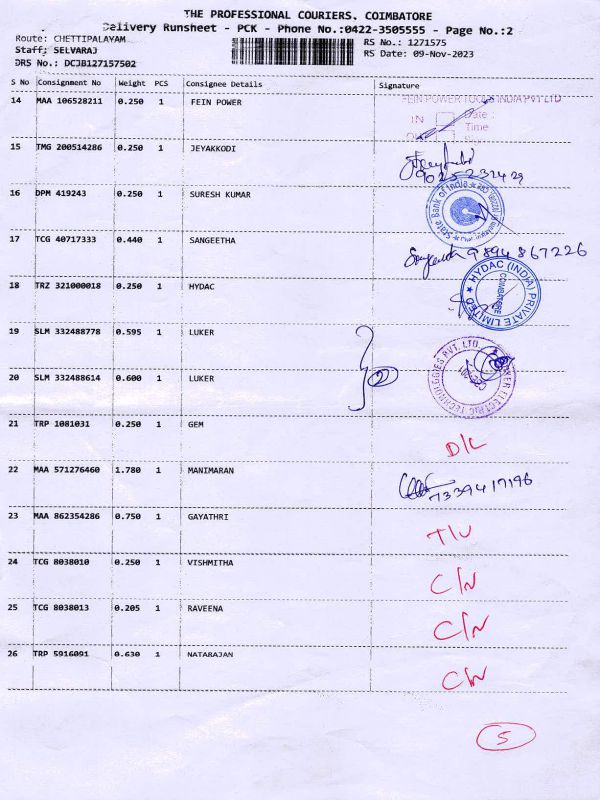 THE PROFESSIONAL COURIERS. COIMBATORE
Delivery Runsheet - PCK - Phone No.:0422-3505555 - Page No.:2
Route: CHETTIPALAYAM
RS No.: 1271575
Staff: SELVARAJ
RS Date: 09-Nov-2023
DRS No.: DCJB127157502
S No Consignment No Weight PCS Consignee Details Signature
14 MAA 106528211 0.250 1 FEIN POWER
FEIN POWER TOOLS INDIA PVT LTD
IN Date :
Time
15 TMG 200514286 0.250 1 JEYAKKODI
16 DPM 419243 0.250 1 SURESH KUMAR
State Bank of India
17 TCG 40717333 0.440 1 SANGEETHA
9894867226
18 TRZ 321000018 0.250 1 HYDAC
HYDAC (INDIA) PRIVATE LIMITED
COIMBATORE
19 SLM 332488778 0.595 1 LUKER
2
20 SLM 332488614 0.600 1 LUKER
ELECTRIC TECHNOLOGIES PVT. LTD.
21 TRP 1081031 0.250 1 GEM D/L
22 MAA 571276460 1.780 1 MANIMARAN
7339417196
23 MAA 862354286 0.750 1 GAYATHRI
24 TCG 8038010 0.250 1 VISHMITHA C/N
25 TCG 8038013 0.205 1 RAVEENA C/N
26 TRP 5916091 0.630 1 NATARAJAN C/N
5